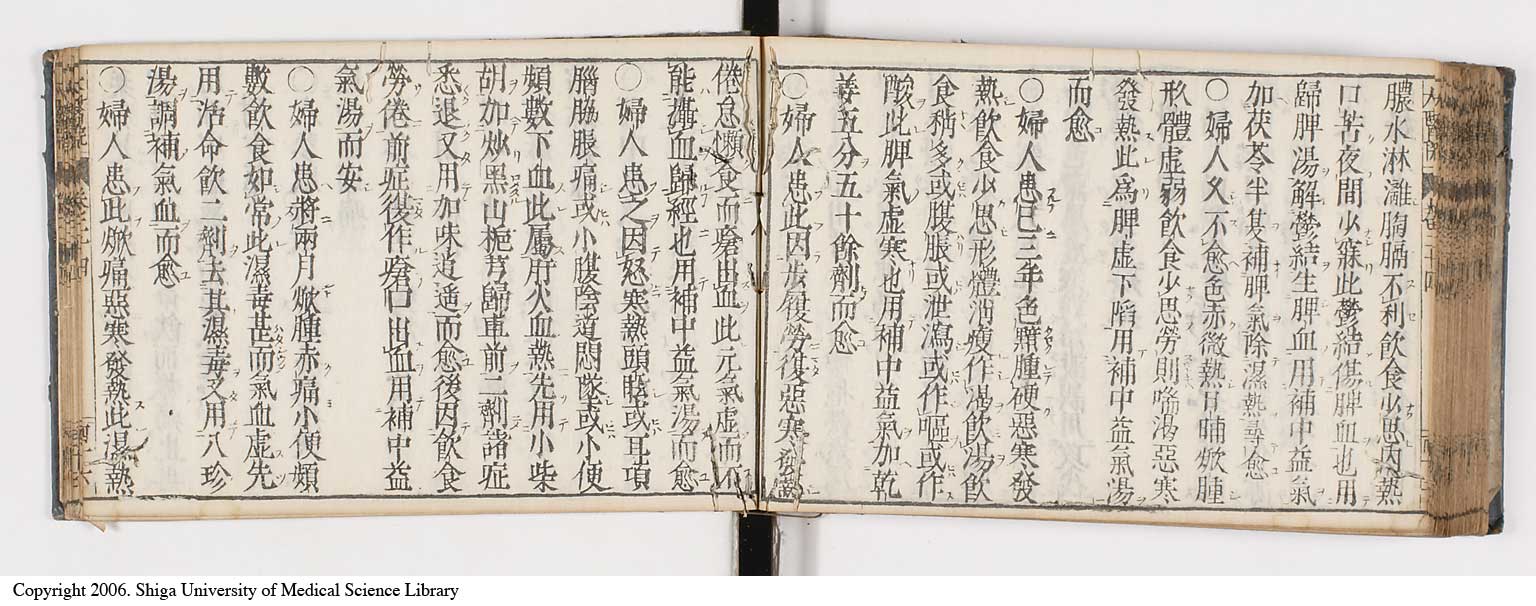 膿水淋灕胸膈不利飲食少思内熱
口苦夜間少寐此鬱結傷脾血也用
歸脾湯解鬱結生脾血用補中益氣
加茯苓半夏補脾氣除濕熱尋愈
〇婦人久不愈色赤微熱日晡焮腫
形體虚弱飲食少思勞則喘渴惡寒
發熱此爲脾虚下陷用補中益氣湯
而愈
〇婦人患巳三年色黯腫硬惡寒發
熱飲食少思形體消瘦作渴飲湯飲
食稍多或腹脹或泄瀉或作嘔或作
酸此脾氣虚寒也用補中益氣加乾
姜五分五十餘劑而愈
〇婦人患此因步履勞復惡寒發熱
倦怠懶食而瘡出血此元氣虚而不
能攝血歸經也用補中益氣湯而愈
〇婦人患之因怒寒熱頭眩或耳項
腦脇脹痛或小腹陰道悶墜或小便
頻數下血此屬肝火血熱先用小柴
胡加炒黑山梔芎歸車前二劑諸症
悉退又用加味逍遥而愈後因飲食
勞倦前症復作瘡口出血用補中益
氣湯而安
〇婦人患將兩月焮腫赤痛小便頻
數飲食如常此濕毒甚而氣血虚先
用活命飲二劑去其濕毒又用八珍
湯調補氣血而愈
〇婦人患此焮痛惡寒發熱此濕熱